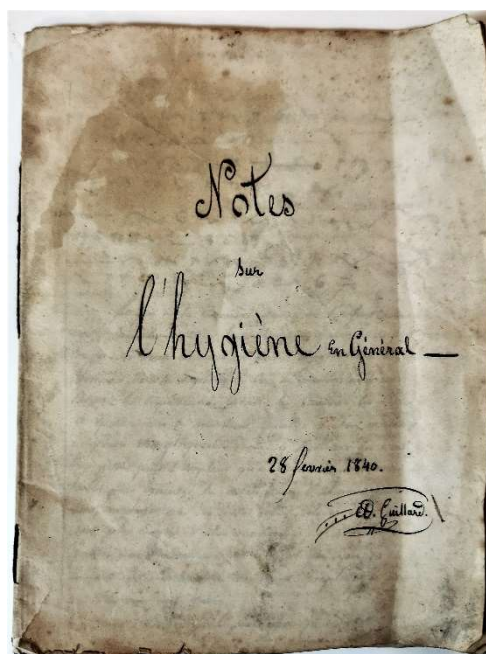 Notes
sur
l'hygiène en Général —
28 fevrier 1840.
ED. Guillard.